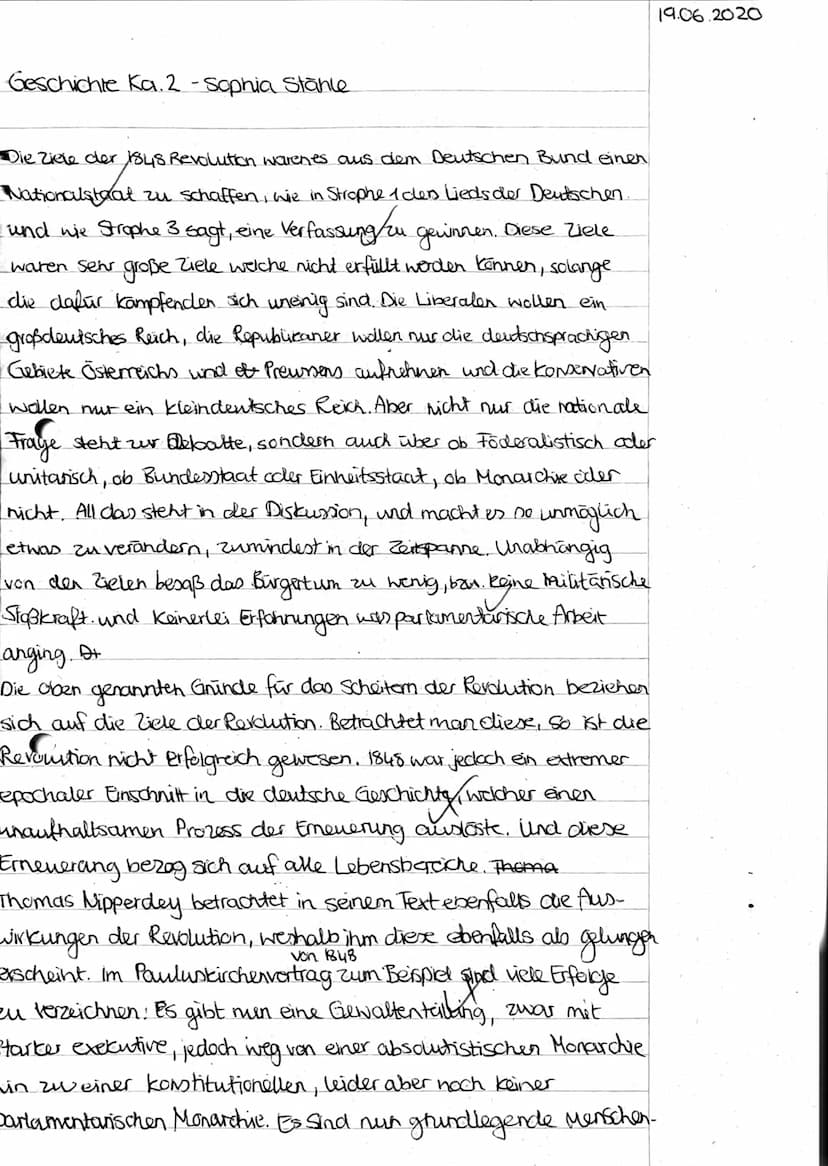 19.06.2020
Geschichte Ka.2 - Sophia Stähle
Die Ziele der 1848 Revolution waren es aus dem Deutschen Bund einen
Nationalstaat zu schaffen, wie in Strophe 1 des Lieds der Deutschen
und wie Strophe 3 sagt, eine Verfassung zu gewinnen. Diese Ziele
waren sehr große Ziele welche nicht erfüllt werden können, solange
die dafür kämpfenden sich uneinig sind. Die Liberalen wollen ein
großdeutsches Reich, die Republikaner wollen nur die deutschsprachigen
Gebiete Österreichs und Preussens aufnehmen und die Konservativen
wollen nur ein kleindeutsches Reich. Aber nicht nur die nationale
Frage steht zur Debatte, sondern auch über ob Föderalistisch oder
unitarisch, ob Bundesstaat oder Einheitsstaat, ob Monarchie oder
nicht. All das steht in der Diskussion, und macht es so unmöglich
etwas zu verändern, zumindest in der Zeitspanne. Unabhängig
von den Zielen besaß das Bürgertum zu wenig, bzw. keine militärische
Stoßkraft und keinerlei Erfahrungen was parlamentarische Arbeit
anging.
Die oben genannten Gründe für das Scheitern der Revolution beziehen
sich auf die Ziele der Revolution. Betrachtet man diese, so ist die
Revolution nicht erfolgreich gewesen. 1848 war jedoch ein extremer
epochaler Einschnitt in die deutsche Geschichte, welcher einen
unaufhaltsamen Prozess der Erneuerung auslöste. Und diese
Erneuerung bezog sich auf alle Lebensbereiche. Thoma
Thomas Nipperdey betrachtet in seinem Text ebenfalls die Aus-
wirkungen der Revolution, weshalb ihm diese ebenfalls als gelungen
erscheint. Im Pauluskirchenvertrag von 1848 zum Beispiel sind viele Erfolge
zu verzeichnen: Es gibt nun eine Gewaltenteilung, zwar mit
starker exekutive, jedoch weg von einer absolutistischen Monarchie
hin zu einer konstitutionellen, leider aber noch keiner
parlamentarischen Monarchie. Es sind nun grundlegende Menschen-